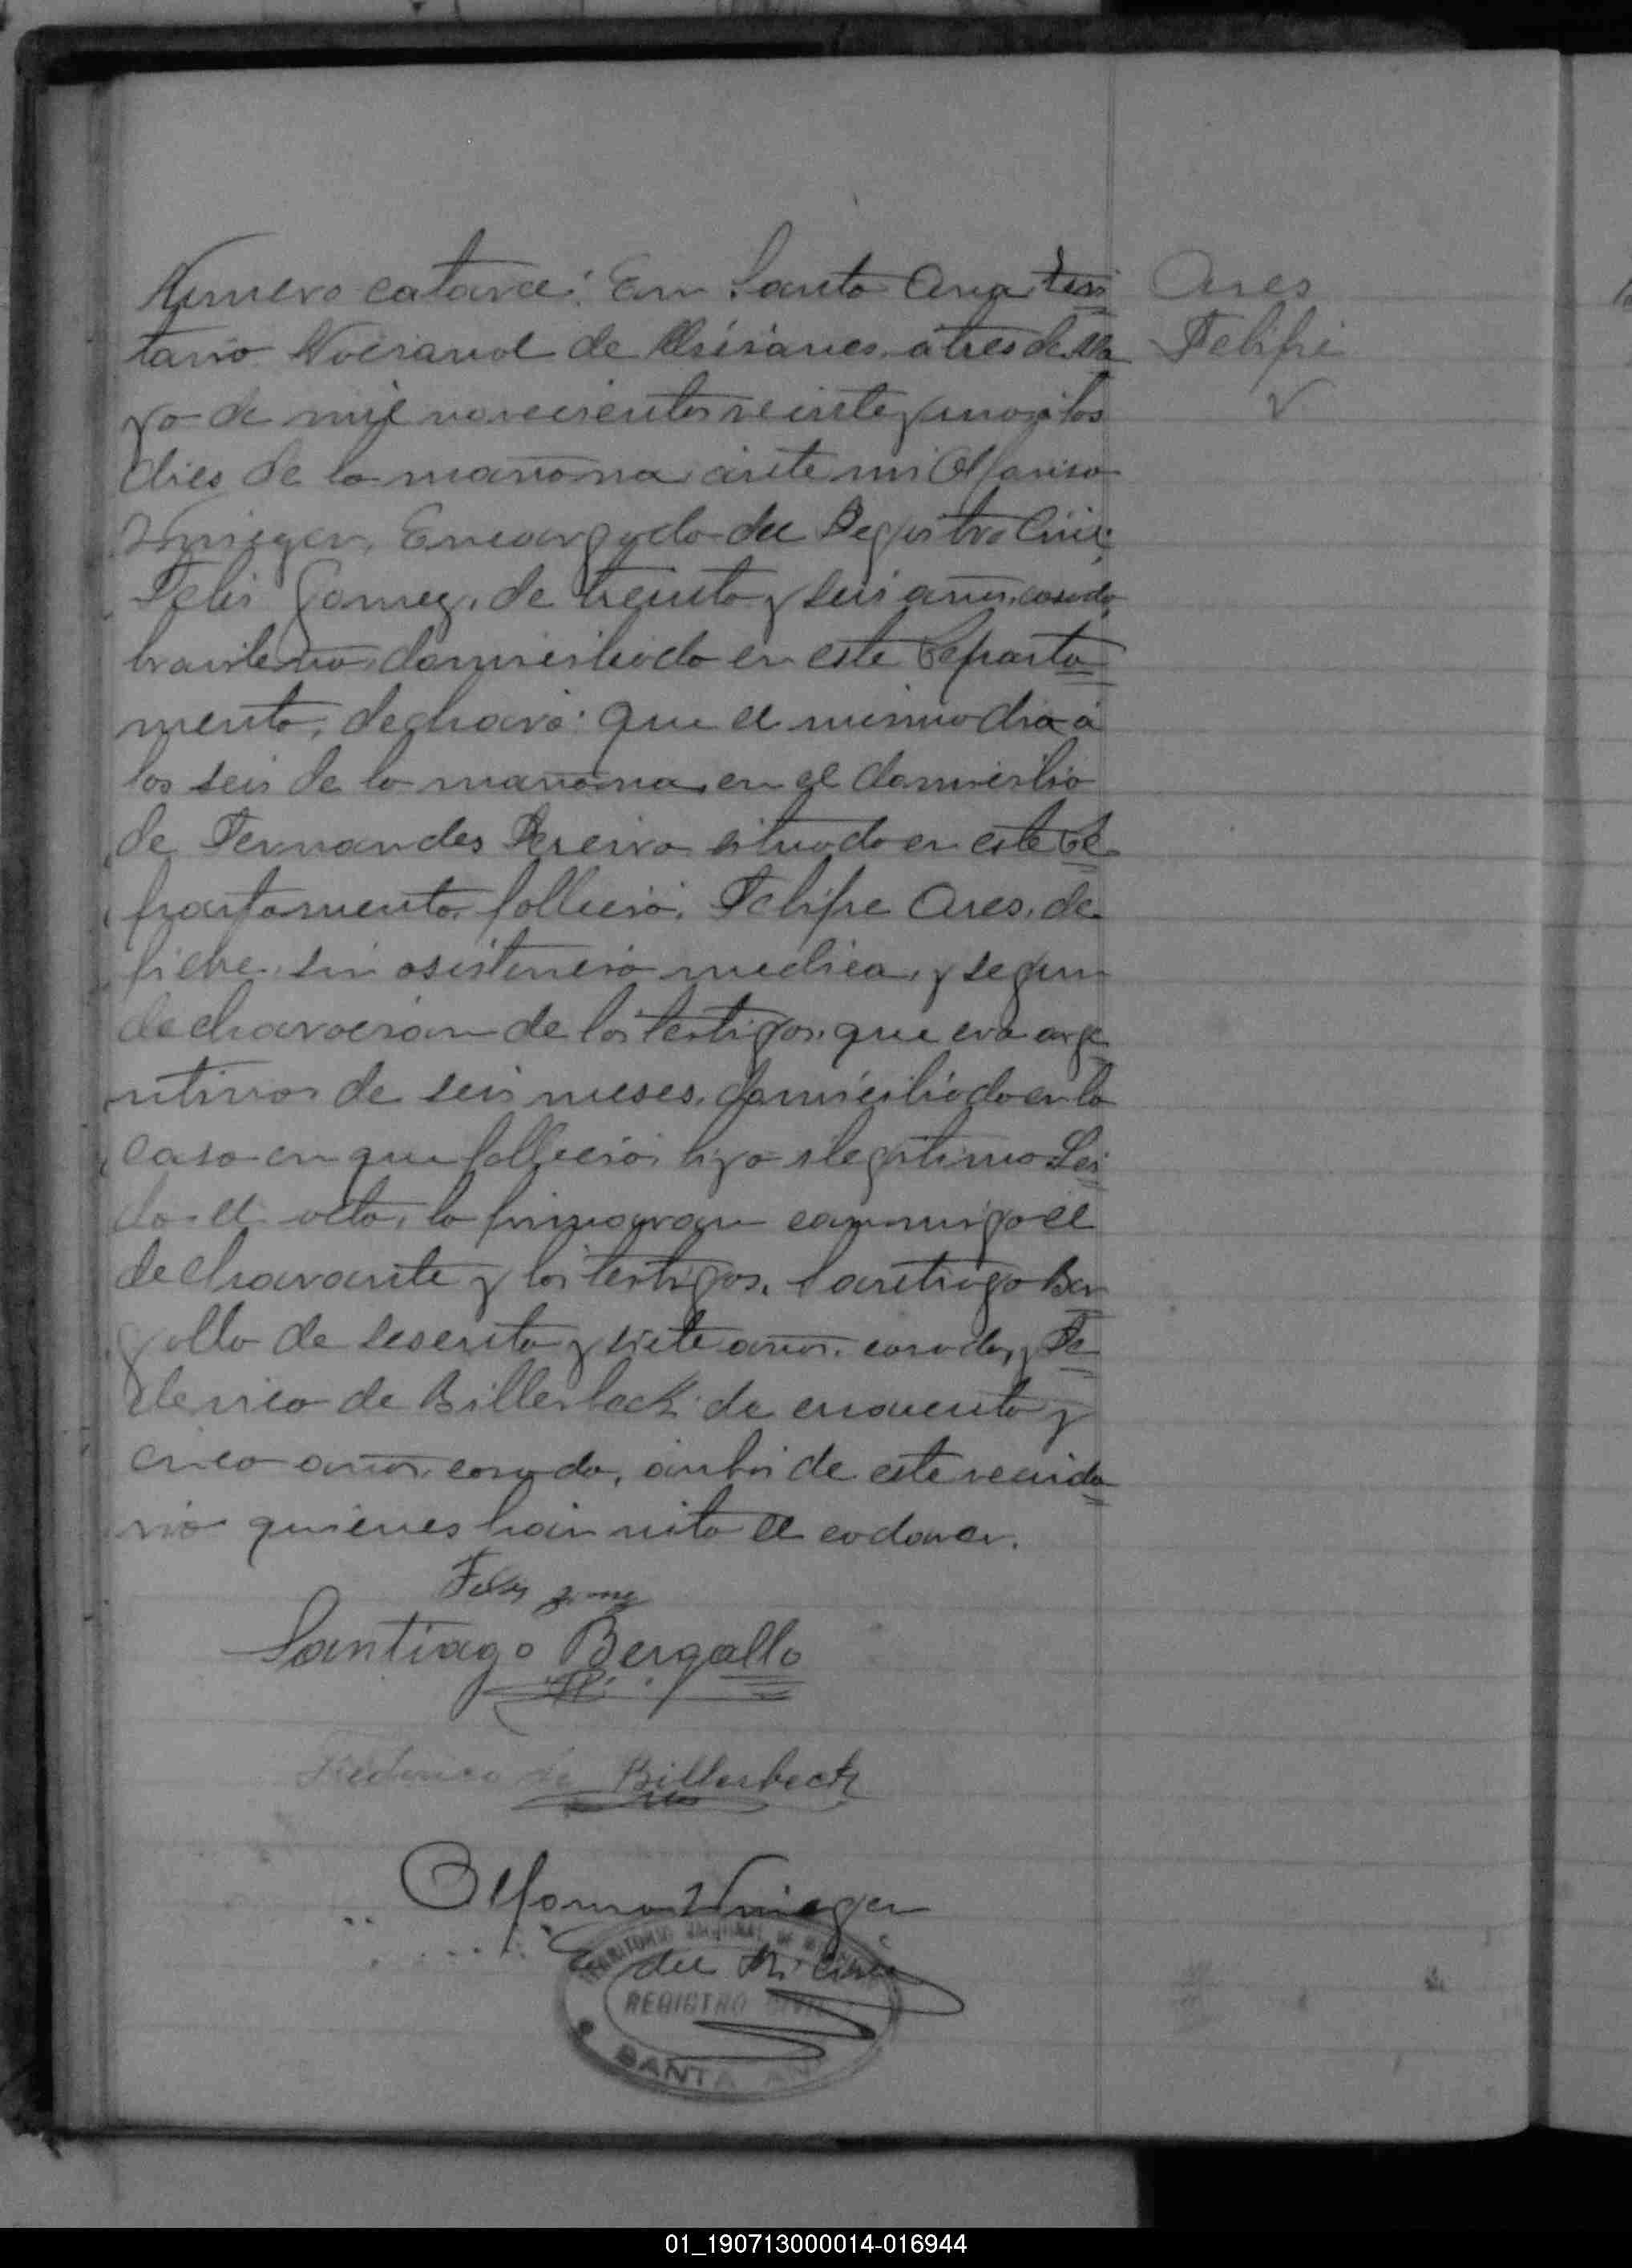 Numero catorce: En Santa Ana terri
torio Nacional de Misiones, a tres de Ma
yo de mil novecientos veinte y uno, a las
diez de la mañana, ante mi Alfonso
Encargado del Registro Civil
Felis Gomez, de treinta y seis años, casado,
brasileño, domiciliado en este Departa
mento, declaró: Que el mismo dia a
las seis de la mañana, en el domicilio
de Fernandes Pereira situado en este De
partamento, falleció, Felipe Ares, de
fiebre, sin asistencia medica, y segun
declaracion de los testigos, que era arge
ntino, de seis meses, domiciliado en la
casa en que falleció, hijo ilegitimo. Lei
do el acta, la firmaron conmigo el
declarante y los testigos, Santiago Ber
gallo de sesenta y siete años, casado, y Fe
derico de Billerbeck de cincuenta y
cinco años, casado, ambos de este vecinda
rio quienes han visto el cadaver.
Ares
Felipe
Felis Gomez
Santiago Bergallo
Federico de Billerbeck
Alfonso
E. del R. Civil
TERRITORIO NACIONAL DE MISIONES
REGISTRO CIVIL
SANTA ANA
01_190713000014-016944